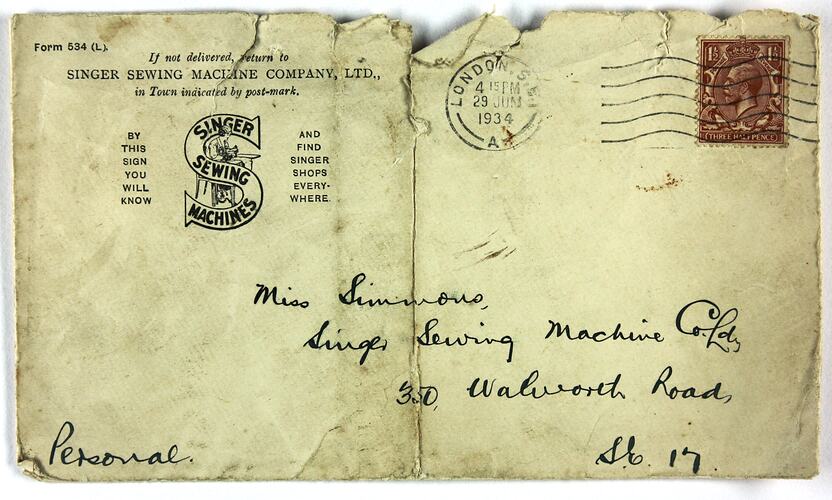 Form 534 (L).
If not delivered, return to
SINGER SEWING MACHINE COMPANY, LTD.,
in Town indicated by post-mark.
BY
THIS
SIGN
YOU
WILL
KNOW
SINGER
SEWING
MACHINES
AND
FIND
SINGER
SHOPS
EVERY-
WHERE.
LONDON, S.E.1
4 15 PM
29 JUN
1934
A
1½ 1½
THREE HALFPENCE
Miss Simmons,
Singer Sewing Machine Co. Ld,
350, Walworth Road,
S.E. 17.
Personal.